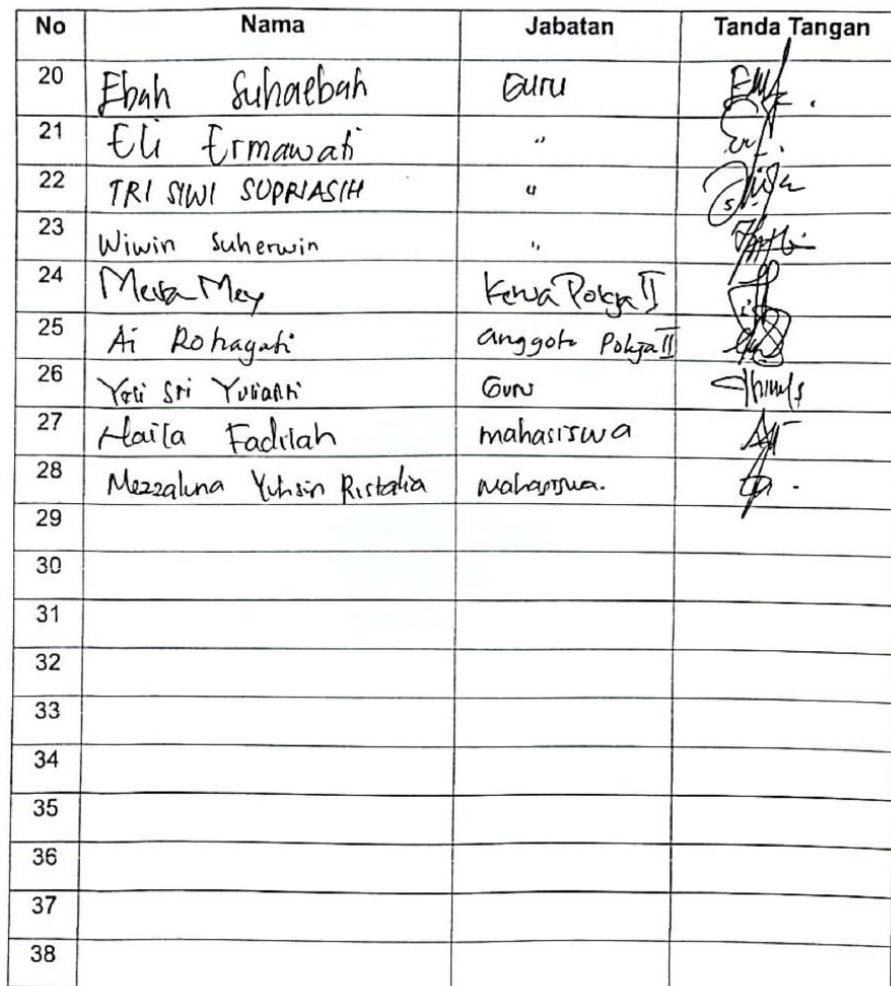 No Nama Jabatan Tanda Tangan
20 Ebah Suhaebah Guru
21 Eli Ermawati "
22 TRI SIWI SUPRIASIH "
23 Wiwin Suherwin "
24 Ketua Pokja II
25 Ai Rohayati anggota Pokja II
26 Sri Yulianti Guru
27 Haila Fadilah mahasiswa
28 Mezzaluna Ristalia mahasiswa.
29
30
31
32
33
34
35
36
37
38